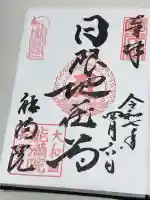 奉拝
令和七年
四月六日
日限地蔵尊
能満院